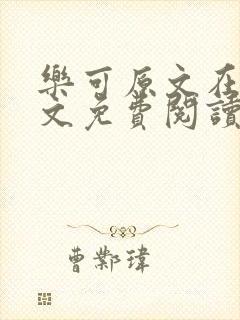 樂可原文在
文免費閱讀
曹鄴瑋